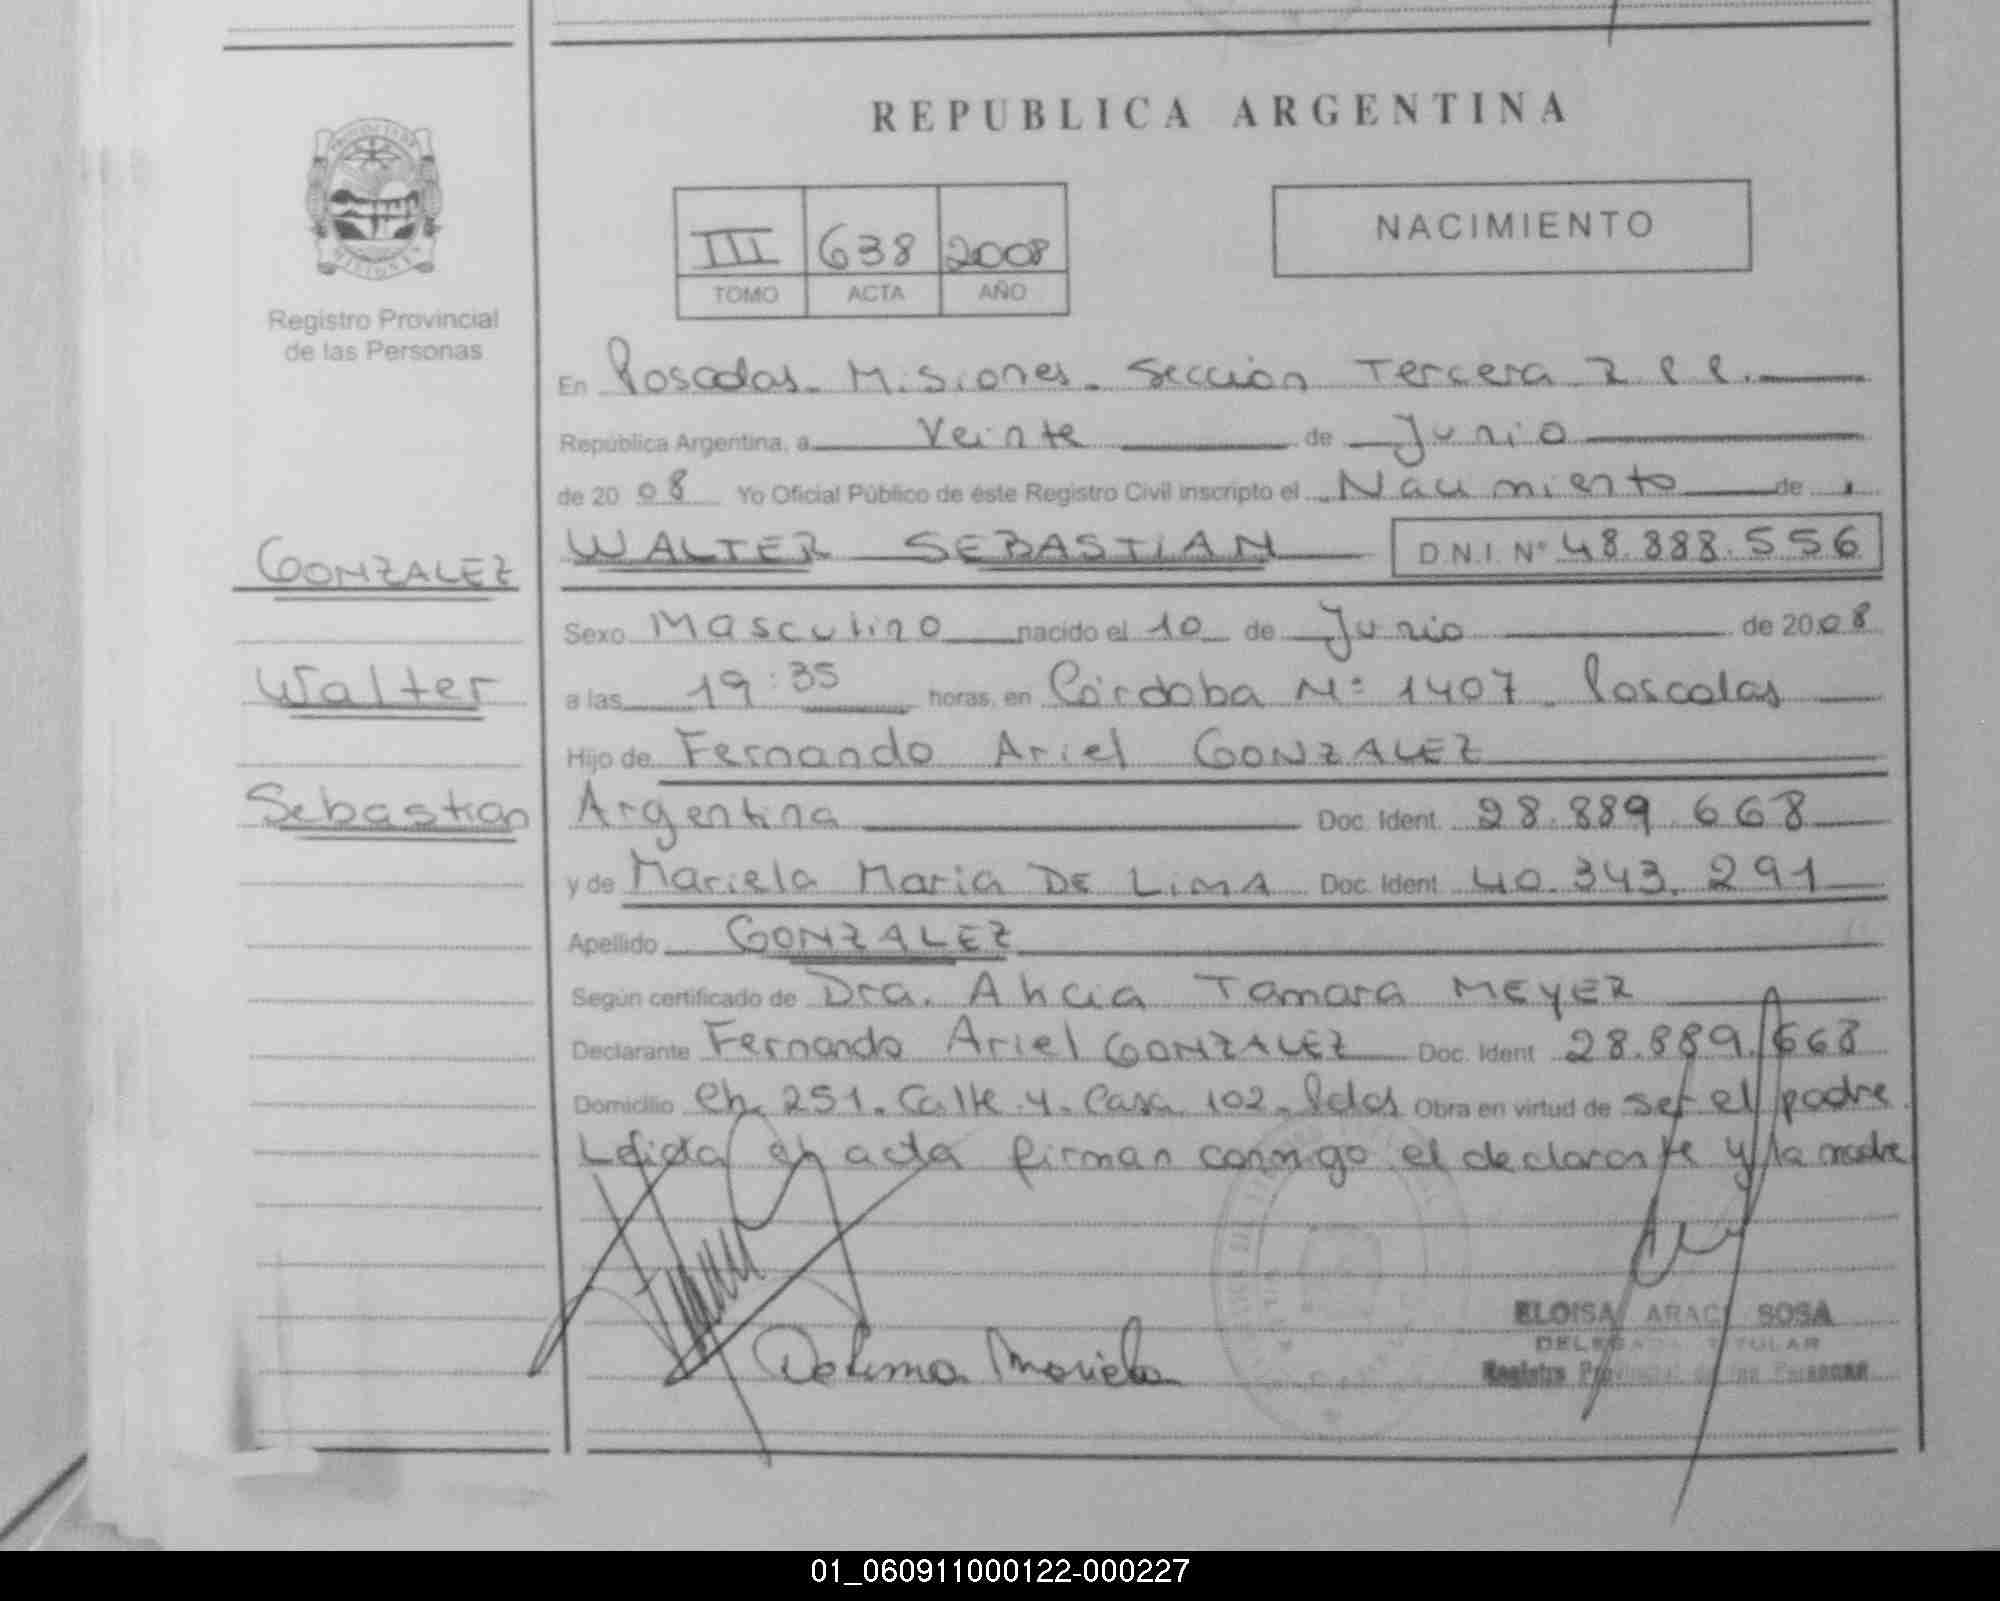 REPUBLICA ARGENTINA
PROVINCIA DE
MISIONES
Registro Provincial
de las Personas
III 638 2008
TOMO ACTA AÑO
NACIMIENTO
En Posadas - Misiones - Sección Tercera
República Argentina, a Veinte de Junio
de 2008 Yo Oficial Público de éste Registro Civil inscripto el Nacimiento de
WALTER SEBASTIAN D.N.I. Nº 48.888.556
GONZALEZ
Walter
Sebastian
Sexo Masculino nacido el 10 de Junio de 2008
a las 19:35 horas, en Córdoba Nº 1407 - Posadas
Hijo de Fernando Ariel GONZALEZ
Argentina Doc. Ident. 28.889.668
y de Mariela Maria DE LIMA Doc. Ident. 40.343.291
Apellido GONZALEZ
Según certificado de Dra. Alicia Tamara MEYER
Declarante Fernando Ariel GONZALEZ Doc. Ident. 28.889.668
Domicilio Ch. 251. Calle 4. Casa 102. Pdas Obra en virtud de ser el padre
Leída el acta firman conmigo el declarante y la madre
Delima Mariela
ELOISA ARACI SOSA
DELEGADA TITULAR
Registro Provincial de las Personas
01_060911000122-000227